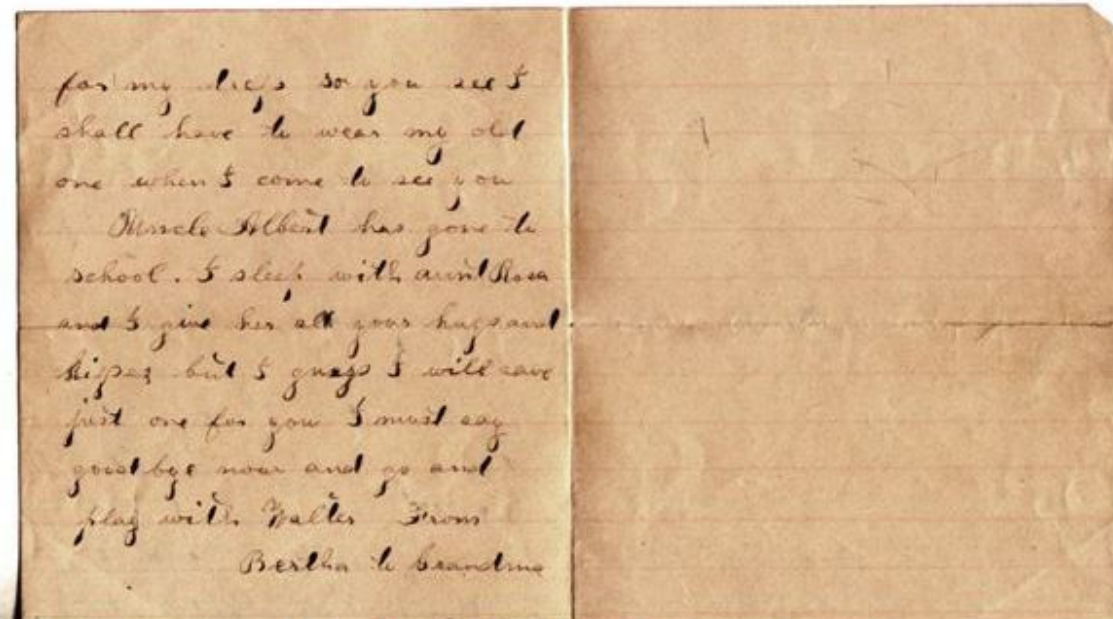 for my so you see I
shall have to wear my old
one when I come to see you
Uncle Albert has gone to
school. I sleep with aunt Rosa
and I give her all your hugs and
kisses but I guess I will save
just one for you I must say
good bye now and go and
play with Walter From
Bertha to Grandma